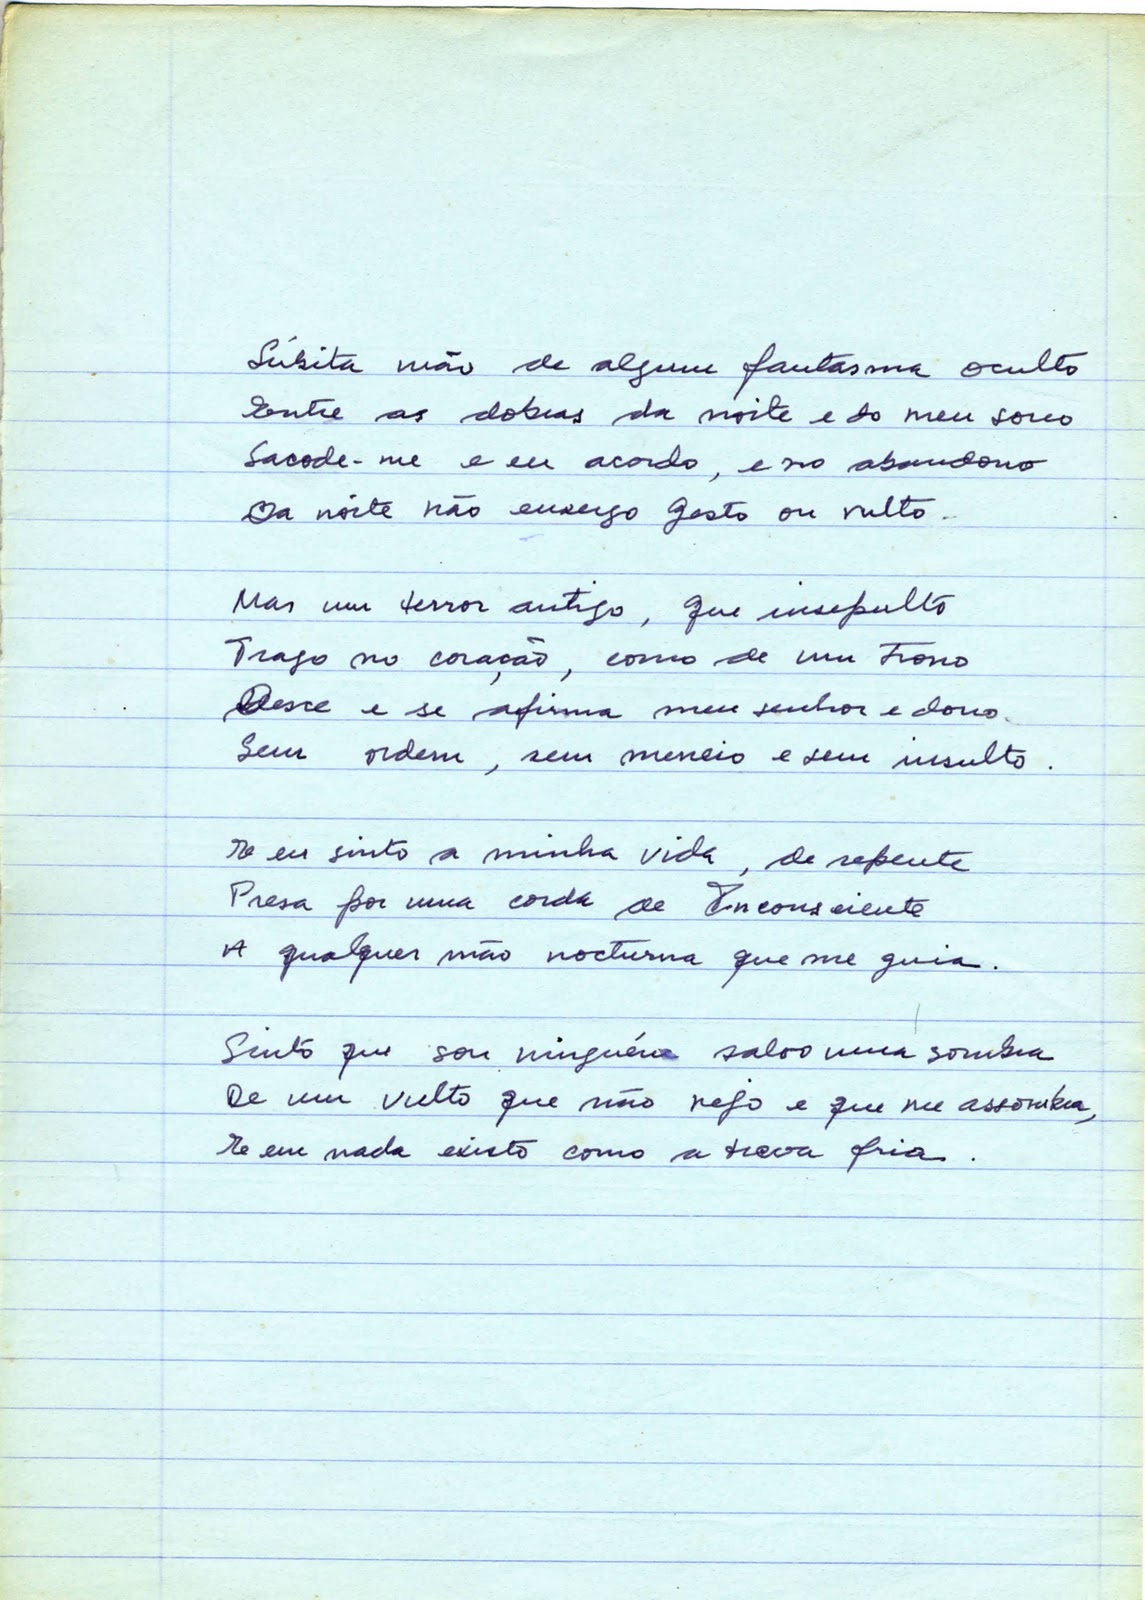 Súbita mão de algum fantasma oculto
Entre as dobras da noite e do meu sono
Sacode-me e eu acordo, e no abandono
Da noite não enxergo gesto ou vulto.
Mas um terror antigo, que insepulto
Trago no coração, como de um trono
Desce e se afirma meu senhor e dono
Sem ordem, sem meneio e sem insulto.
E eu sinto a minha vida, de repente
Presa por uma corda de Inconsciente
A qualquer mão nocturna que me guia.
Sinto que sou ninguém salvo uma sombra
De um vulto que não vejo e que me assombra,
E em nada existo como a treva fria.